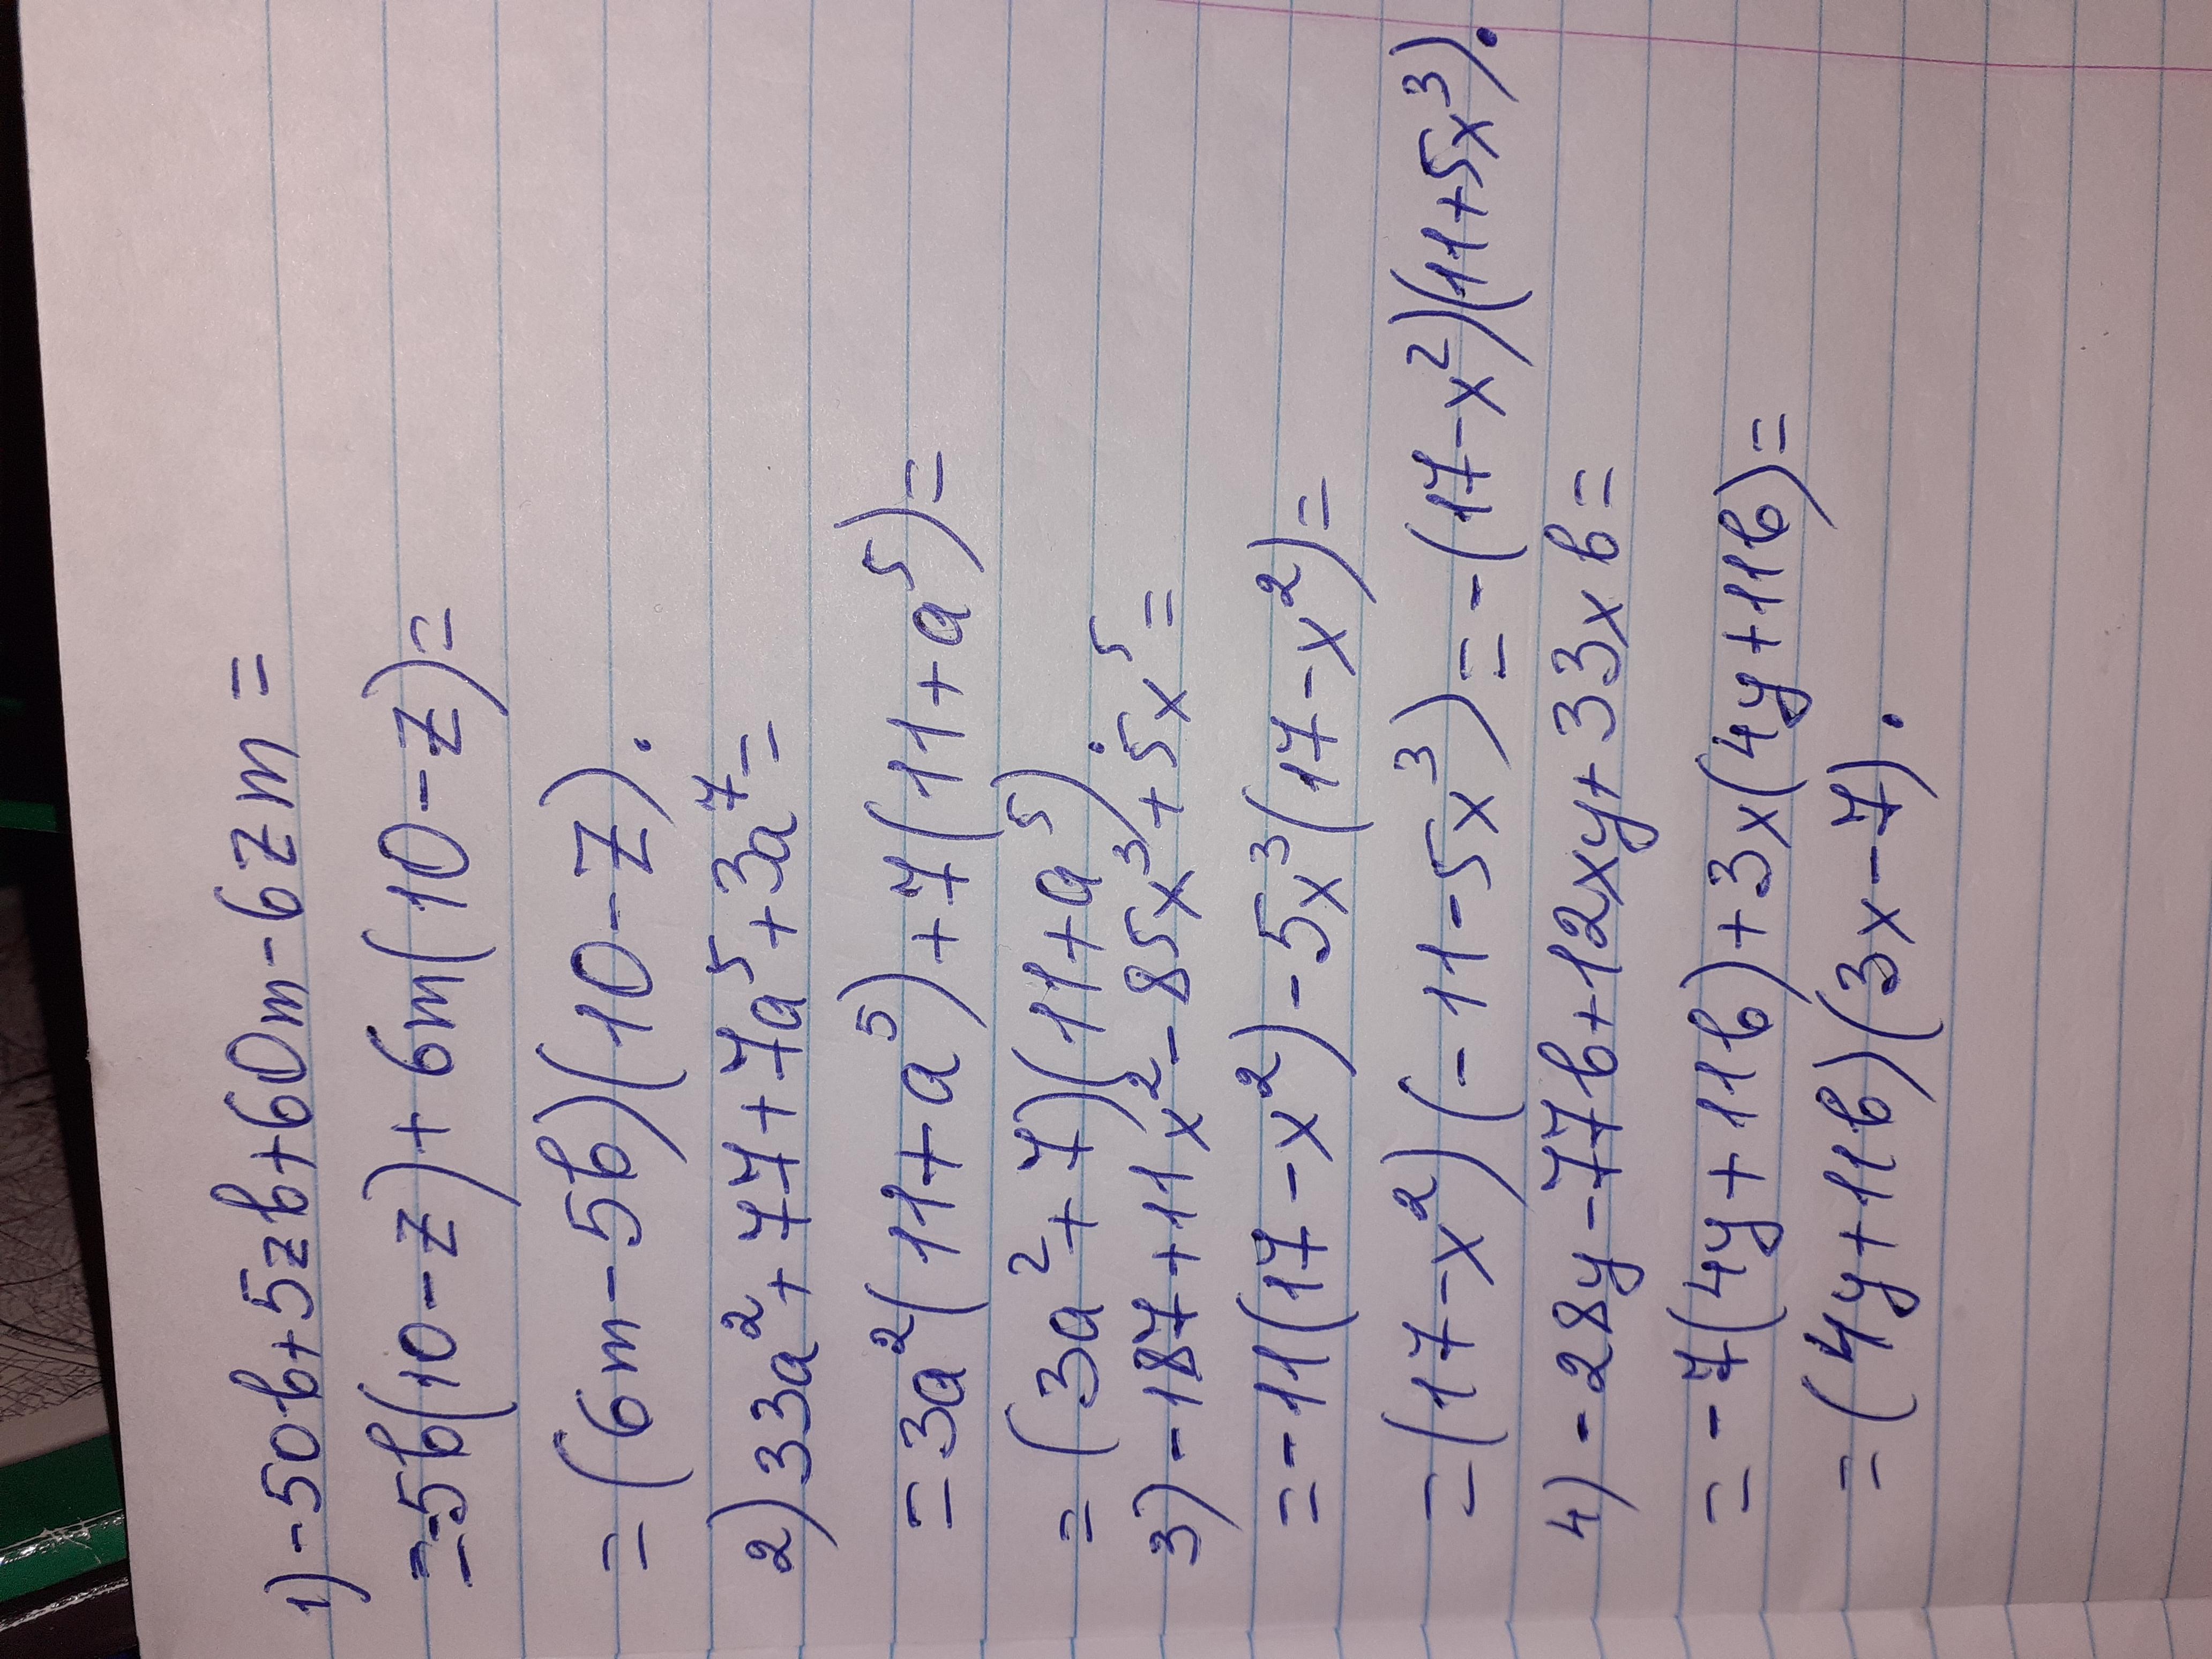 1) -50b+5zb+60m-6zm=
=-5b(10-z)+6m(10-z)=
=(6m-5b)(10-z).
2) 33a²+77+7a⁵+3a⁷=
=3a²(11+a⁵)+7(11+a⁵)=
=(3a²+7)(11+a⁵).
3) -187+11x²-85x³+5x⁵=
=-11(17-x²)-5x³(17-x²)=
=(17-x²)(-11-5x³)=-(17-x²)(11+5x³).
4) -28y-77b+12xy+33xb=
=-7(4y+11b)+3x(4y+11b)=
=(4y+11b)(3x-7).